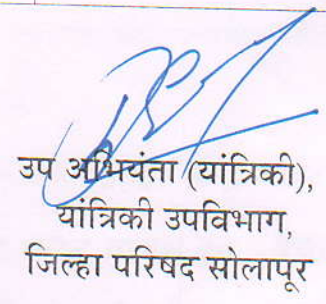 उप अभियंता (यांत्रिकी),
यांत्रिकी उपविभाग,
जिल्हा परिषद सोलापूर